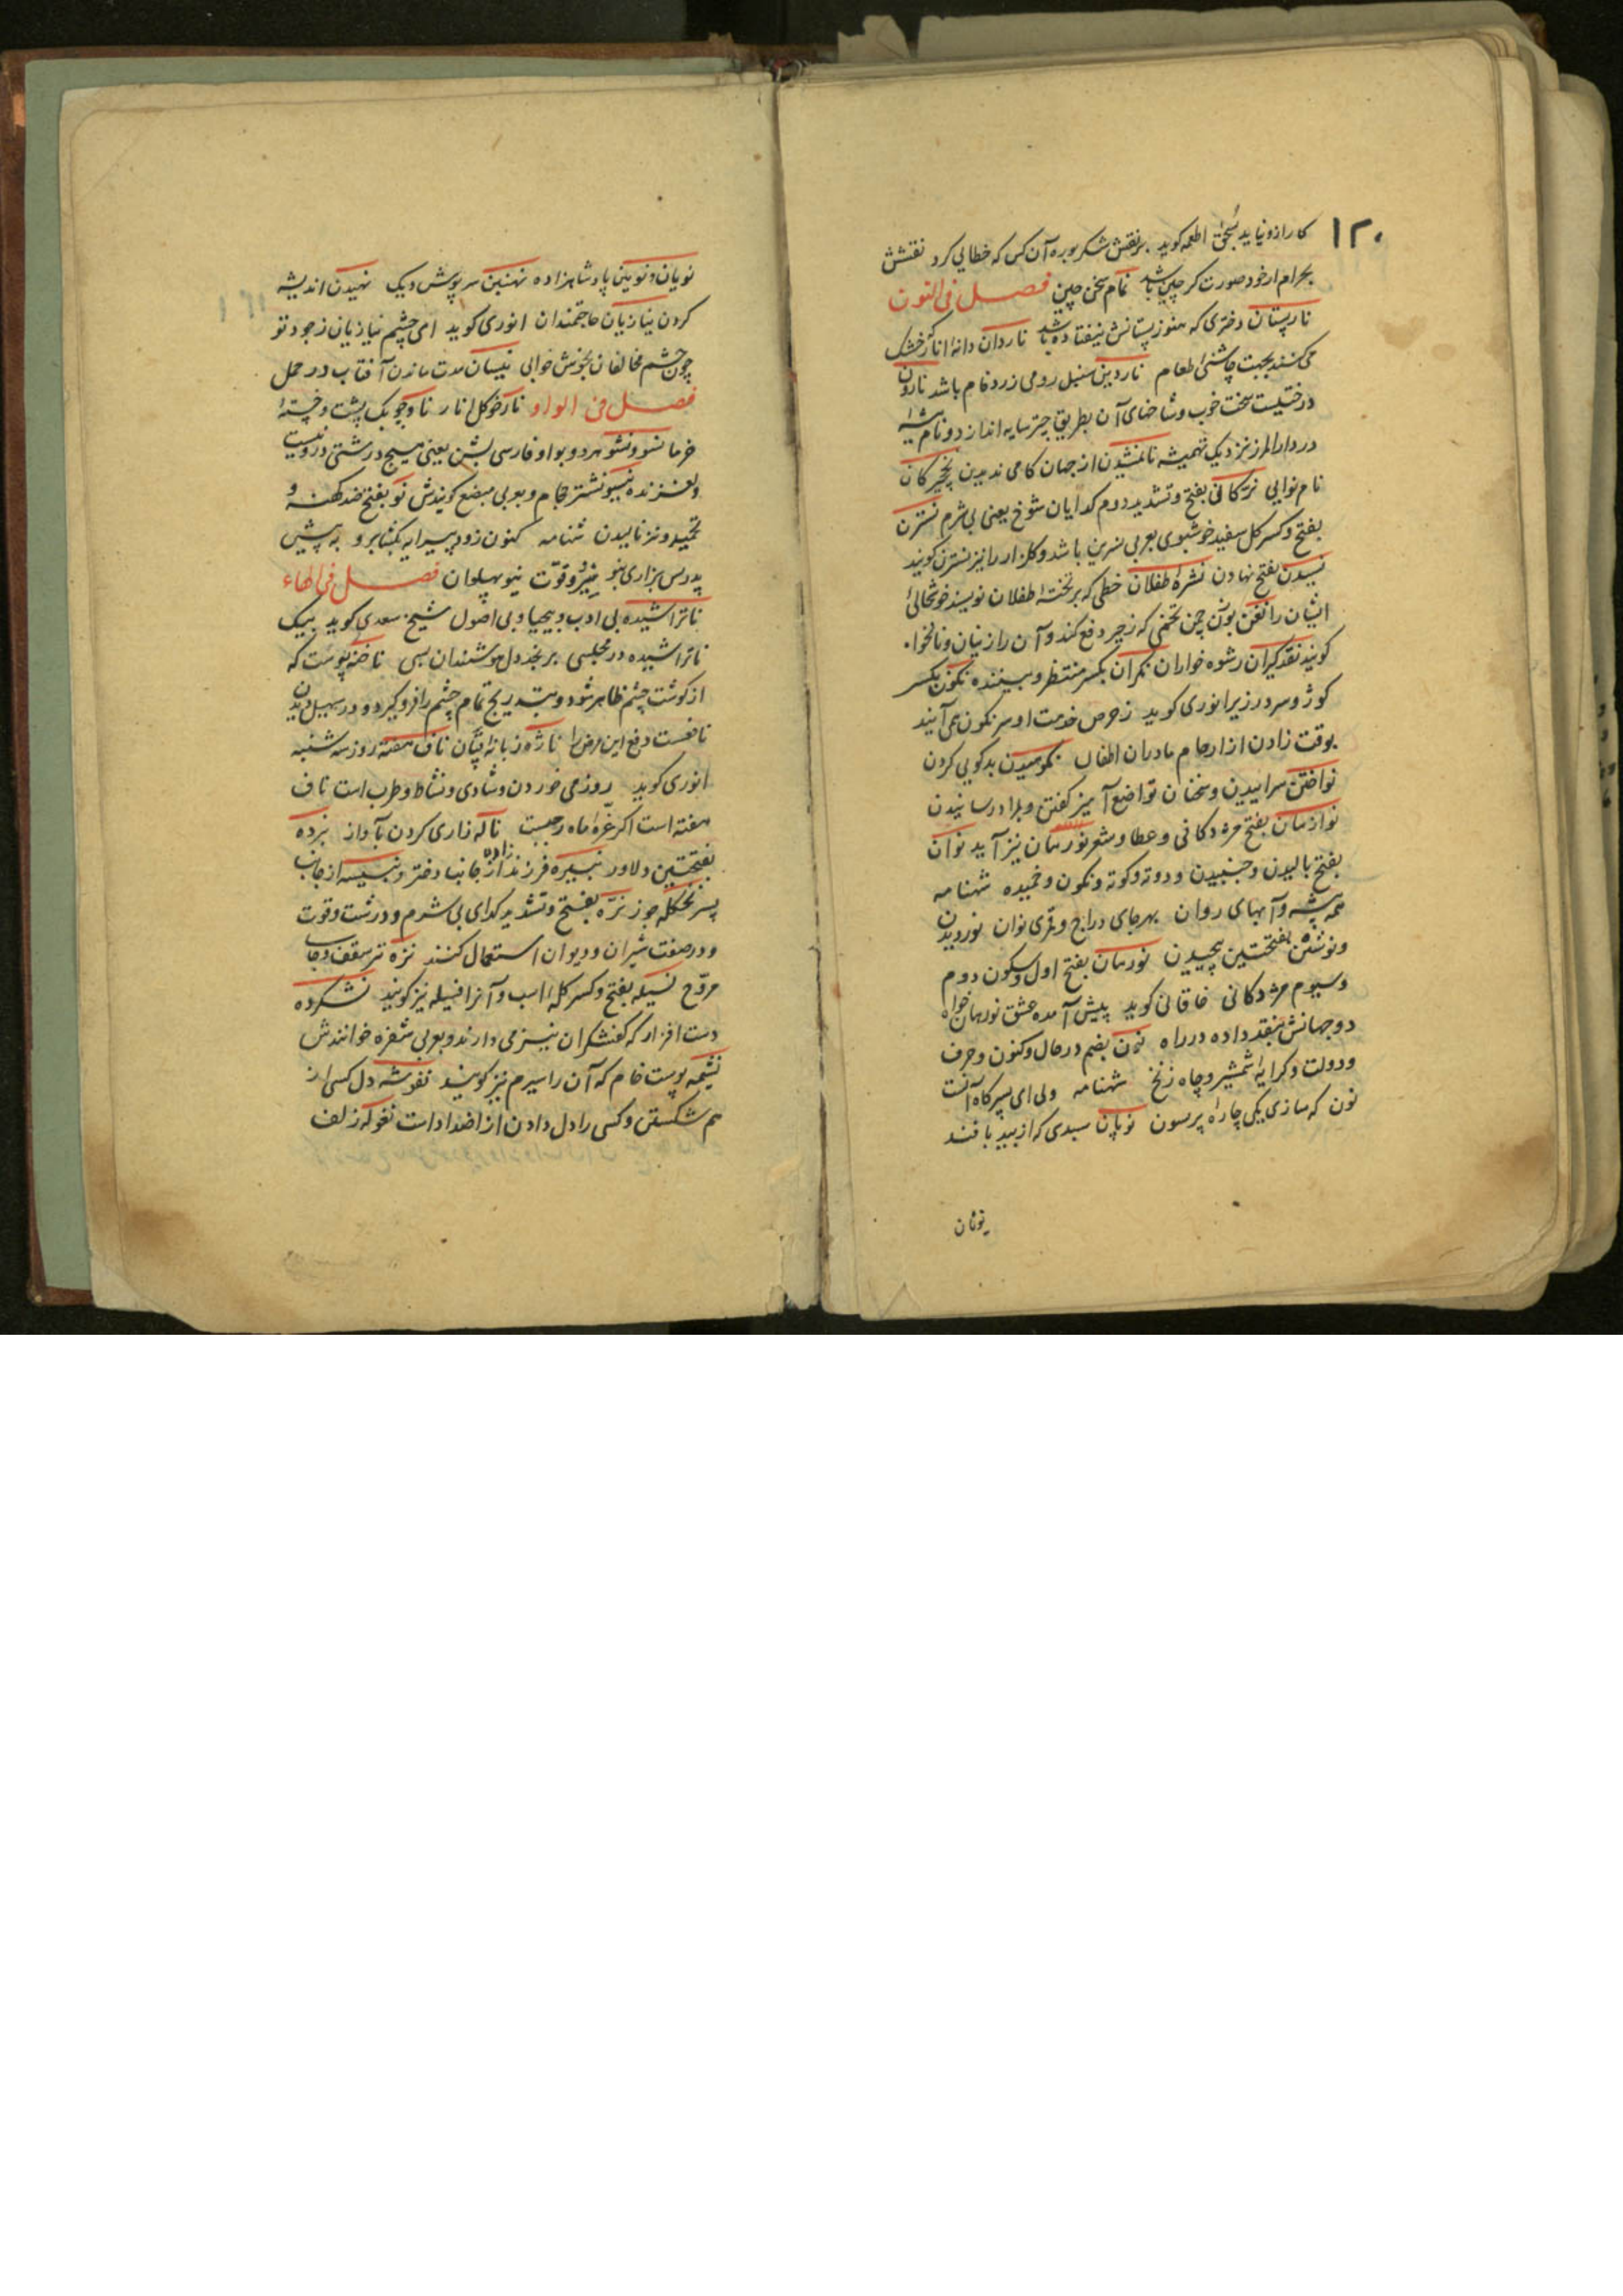 ۱۲۰
کار ازو نیاید بسحق اطعمه کوید بر نقش شکر بوره آن کس که خطایی کرد نقشش
بحرام ار خود صورت کر چین باشد نمام سخن چین فصل فی النون
نارپستان دختری که هنوز پستانش نیفتاده باشد ناردان دانه انار خشک
می کنند بجهت چاشنی اطعام ناردین سنبل رومی زرد فام باشد نارون
درختیست سخت خوب و شاخهای آن بطریق چتر سایه اندازد و نام بیشه
در دار المرز نزدیک تمیشه نامنشدن از جهان کامی ندیدن نخچیرکان
نام نوایی نرّکانی بفتح و تشدید دوم کدایان شوخ یعنی بی شرم نسترن
بفتح و کسر کل سفید خوشبوی بعربی نسرین باشد و کلزار را نیز نسترن کویند
نسیدن بفتح نهادن نشرۀ طفلان خطی که بر تختۀ اطفلان نویسند خوشحالی
ایشان را نغن بوآن چن تخمی که زحیر دفع کند و آن را زنیان و نانخواه
کویند نقدکیران رشوه خواران نکران بکسر منتظر و بیننده نکون بکسر
کوژ و سر در زیر انوری کوید ز حرص خدمت او سرنکون همی آیند
بوقت زادن از ارحام مادران اطفال نکوسیدن بدکویی کردن
نواختن سراییدن و سخنان تواضع آمیز کفتن و بمراد رسانیدن
نوازمان بفتح مژدکانی و عطا و شعر نورهان نیز آید نوان
بفتح بالیدن و جنبیدن و دوته و کوته و نکون و خمیده شهنامه
همه بیشه و آبهای روان بهر جای دراج و قمری نوان نوردیدن
و نوشتن بفتحتین پیچیدن نورهان بفتح اول و سکون دوم
و سیوم مژدکانی خاقانی کوید پیش آمده عشق نورهان خواه
دو جهانش بنقد داده در راه نون بضم در حال و کنون و حرف
و دولت و کرایه شمشیر و چاه زنخ شهنامه ولی ای پسر کاه آنست
نون که سازی یکی چاره پرسون نوپان سبدی که از بید بافند
نویان
نویان و نوین پادشاهزاده نهنبن سرپوش دیک نهیدن اندیشه
کردن نیازیان حاجتمندان انوری کوید امی چشم نیازیان ز جود تو
چون چشم مخالفان بخوش خوابی نیسان مدت ماندن آفتاب در حمل
فصل فی الواو نارخو کل انار ناوچو یک پشت و خستۀ
خرما نسو و نشو هر دو بواو فارسی بشن یعنی هیچ درشتی درو نیست
و لغزنده نیسو نشتر حجام و بعربی مبضع کویندش نو بفتح ضد کهنه و
نخمید و نیز نالیدن شهنامه کنون زود پیرایه بکشا برو به پیش
پدر بس بزاری بنو نیرو قوّت نیو پهلوان فصل فی الهاء
ناتراشیده بی ادب و بیحیا و بی اصول شیخ سعدی کوید بیک
ناتراشیده در مجلسی برنجد دل هوشمندان بسی ناخنه پوست که
از کوشت چشم ظاهر شود و بتدریج تمام چشم را فرو کیرد و در سهیل دیدن
نافعست دفع این مرض را ناژه زبانۀ قپان ناف هفته روز سه شنبه
انوری کوید روز می خوردن و شادی و نشاط و طرب است ناف
هفته است اکر غرۀ ماه رجبست ناله زاری کردن بآواز نبرده
بفتحتین دلاور نبیره فرزند زاده از جانب دختر و نبیسه از جانب
پسر نجکله جوز نرّه بفتح و تشدید کدای بی شرم و درشت و قوت
و در صفت شیران و دیوان استعمال کنند نزه تر سقف و جا
مروّح نسیله بفتح و کسر کلۀ اسب و آنرا فسیله نیز کویند نشکرده
دست افزار که کفشکران نیز می دارند و بعربی شفره خوانندش
نشیمه پوست خام که آن را سیرم نیز کویند نغوشه دل کسی از
هم شکستن و کسی را دل دادن از اضداد است نغوله زلف